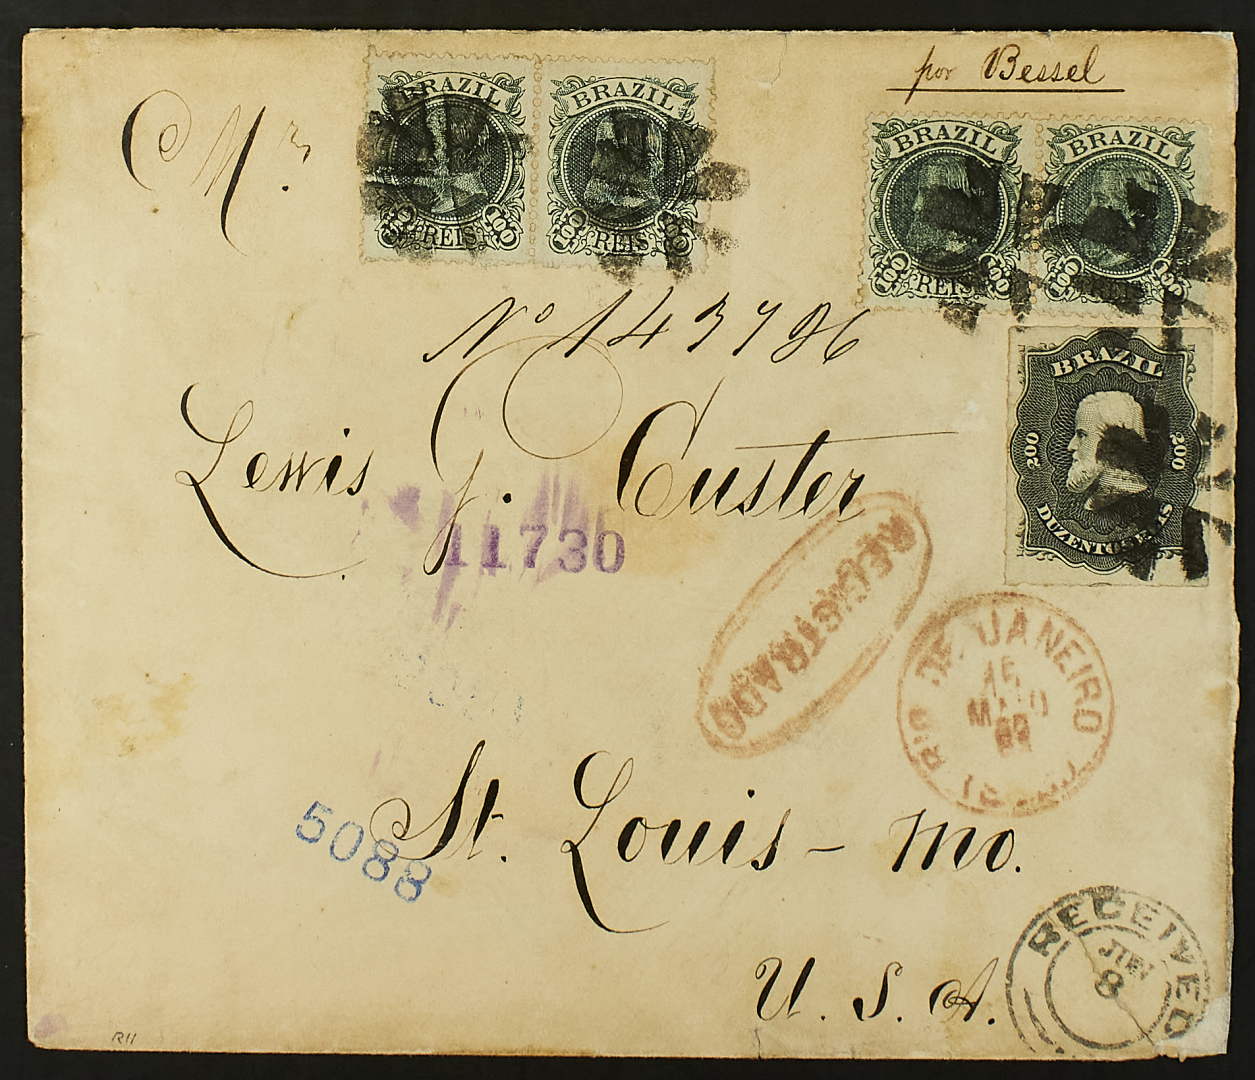 por Bessel
Mr.
BRAZIL
100 REIS 100
BRAZIL
100 REIS 100
BRAZIL
100 REIS 100
BRAZIL
100 REIS 100
BRAZIL
200 200
DUZENTOS REIS
No 143796
Lewis G. Custer
11730
REGISTRADO
RIO DE JANEIRO
15
MAIO
5088
St. Louis - Mo.
U. S. A.
RECEIVED
JUN
8
R11